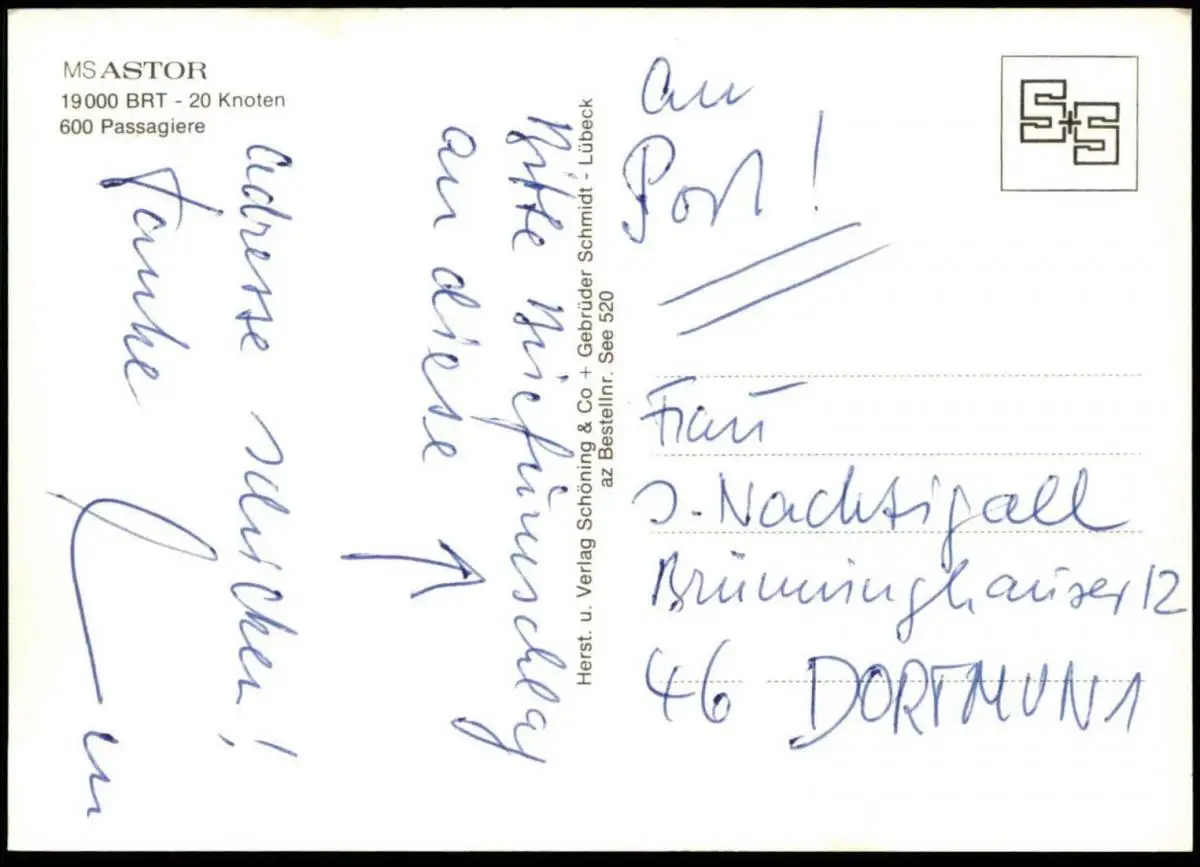 MS ASTOR
19000 BRT - 20 Knoten
600 Passagiere
Bitte Briefumschlag
an diese
Adresse schicken!
Danke
Herst. u. Verlag Schöning & Co + Gebrüder Schmidt - Lübeck
az Bestellnr. See 520
S+S
an
Post!
Frau
J. Nachtigall
Brünninghauser 12
46 DORTMUN 1